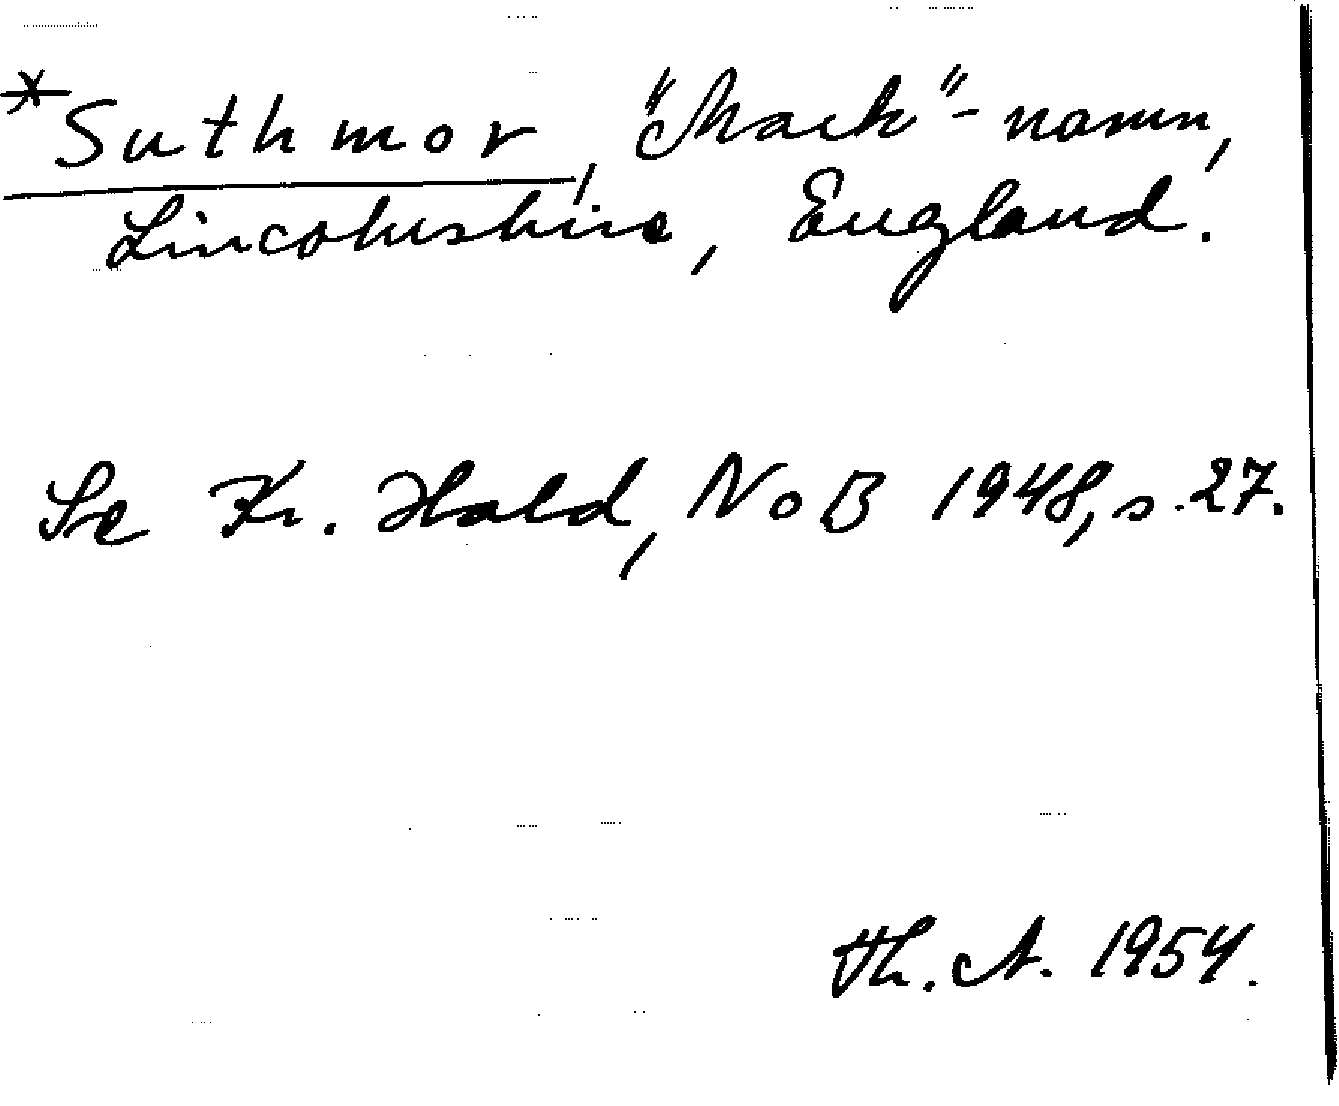 *Suthmor, "Mark"-namn,
Lincolnshire, England.
Se Kr. Hald, NoB 1948, s. 27.
Th. A. 1954.